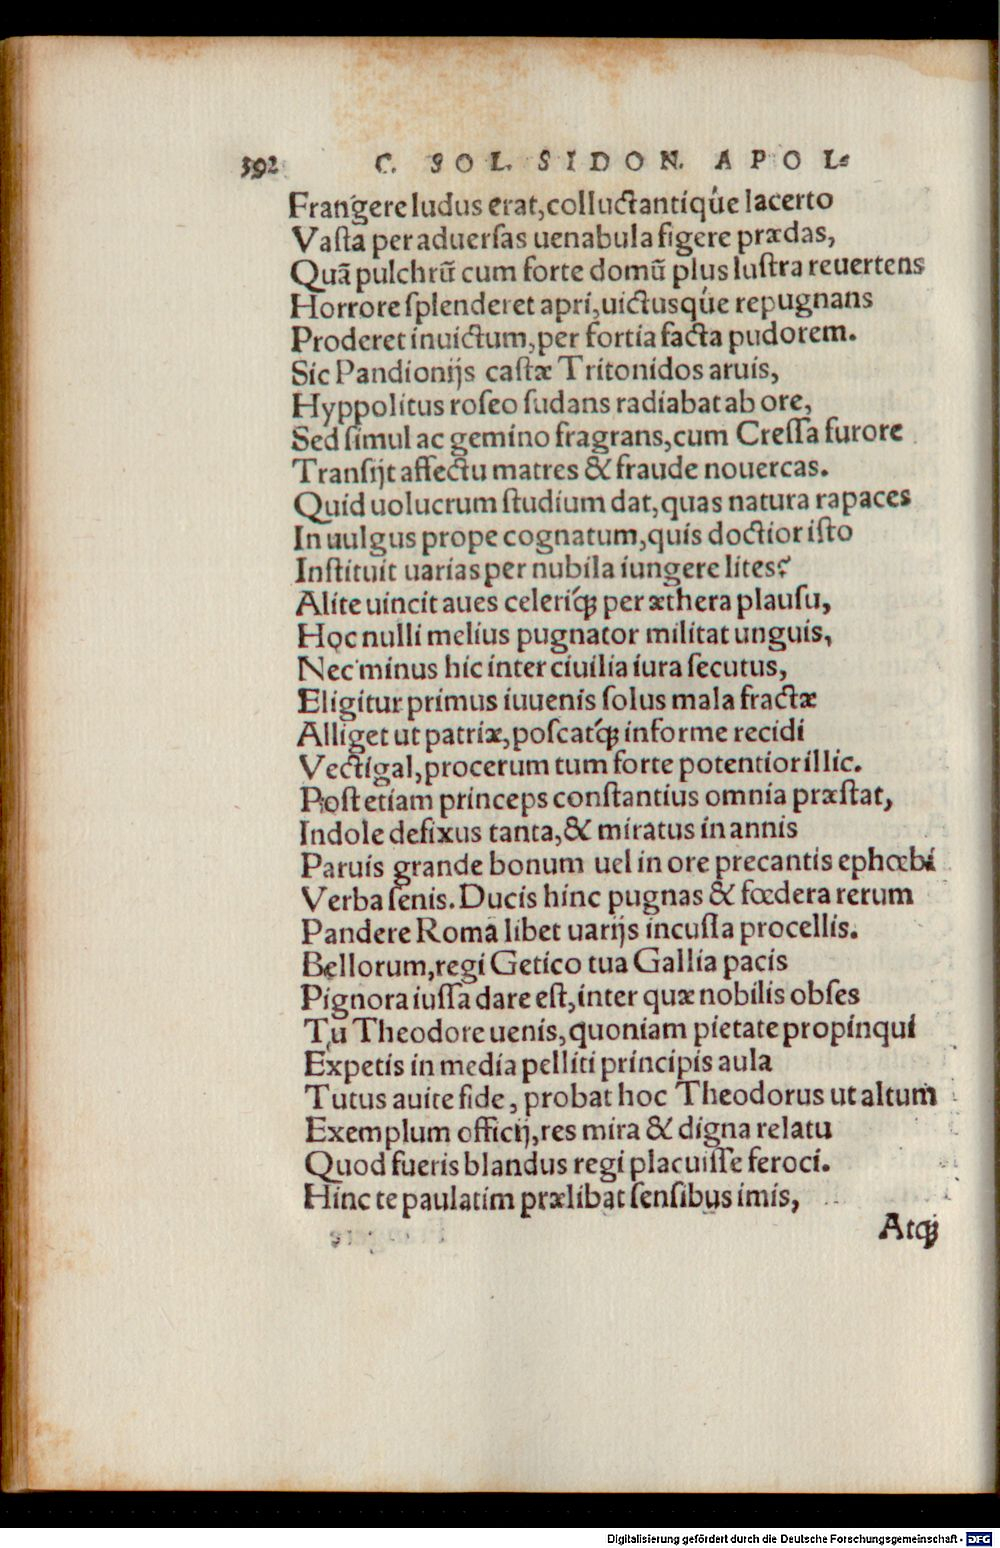 392 C. SOL. SIDON. APOL.
Frangere ludus erat,colluctantiqúe lacerto
Vaſta per aduerſas uenabula figere prædas,
Quã pulchrũ cum forte domũ plus luſtra reuertens
Horrore ſplenderet apri,uictusqúe repugnans
Proderet inuictum,per fortia facta pudorem.
Sic Pandionijs caſtæ Tritonidos aruis,
Hyppolitus roſeo ſudans radiabat ab ore,
Sed ſimul ac gemino fragrans,cum Creſſa furore
Tranſijt affectu matres & fraude nouercas.
Quid uolucrum ſtudium dat,quas natura rapaces
In uulgus prope cognatum,quis doctior iſto
Inſtituit uarias per nubila iungere lites?
Alite uincit aues celeriq́; per æthera plauſu,
Hoc nulli melius pugnator militat unguis,
Nec minus hic inter ciuilia iura ſecutus,
Eligitur primus iuuenis ſolus mala fractæ
Alliget ut patriæ,poſcatq́; informe recidi
Vectigal,procerum tum forte potentior illic.
Poſt etiam princeps conſtantius omnia præſtat,
Indole defixus tanta,& miratus in annis
Paruis grande bonum uel in ore precantis ephœbi
Verba ſenis. Ducis hinc pugnas & fœdera rerum
Pandere Roma libet uarijs incuſſa procellis.
Bellorum,regi Getico tua Gallia pacis
Pignora iuſſa dare eſt,inter quæ nobilis obſes
Tu Theodore uenis,quoniam pietate propinqui
Expetis in media pelliti principis aula
Tutus auite fide, probat hoc Theodorus ut altum
Exemplum officij,res mira & digna relatu
Quod fueris blandus regi placuiſſe feroci.
Hinc te paulatim prælibat ſenſibus imis,
Atq;
Digitalisierung gefördert durch die Deutsche Forschungsgemeinschaft - DFG